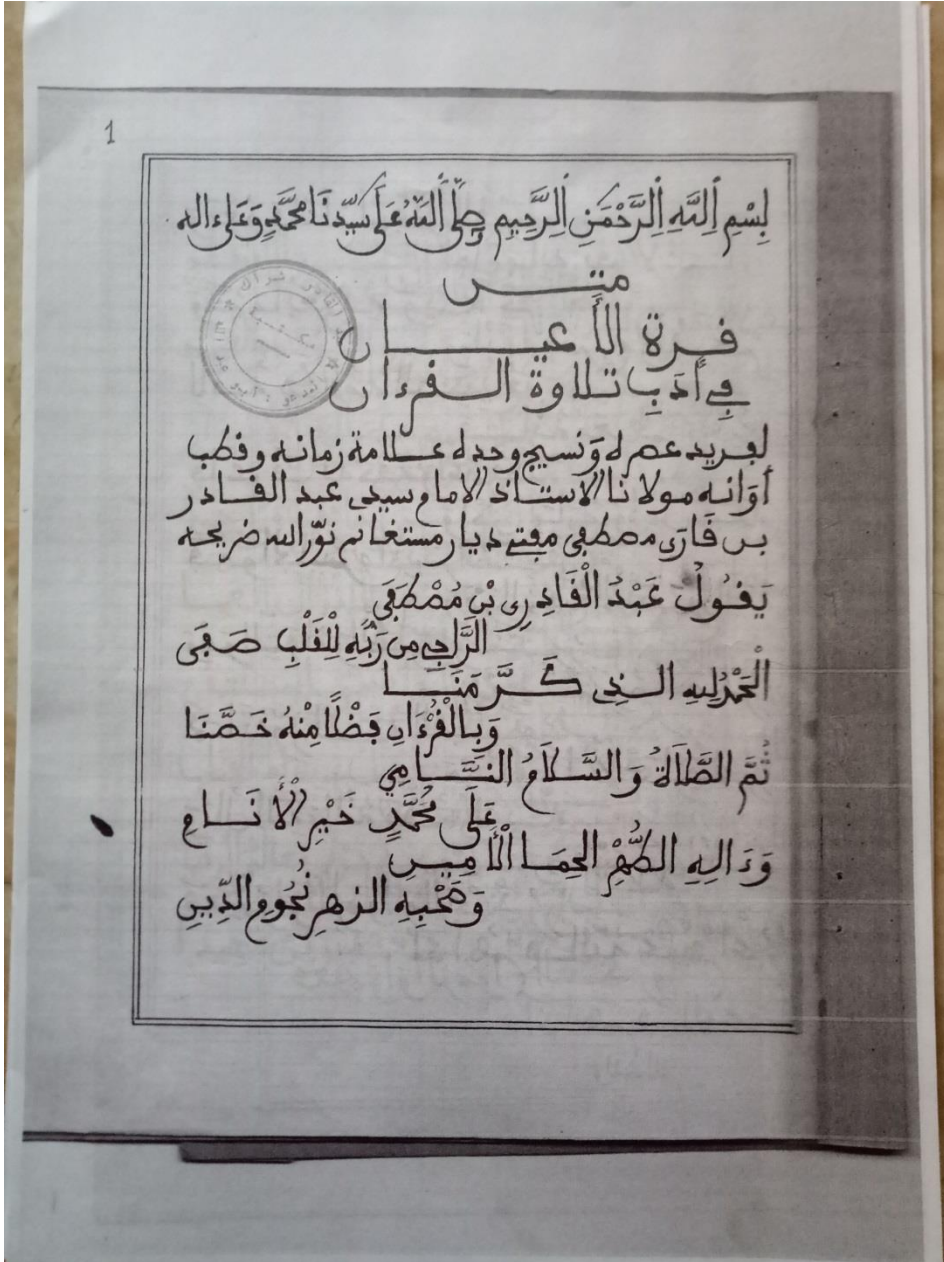 1
بِسْمِ اِللَّهِ اِلرَّحْمَنِ اِلرَّحِيمِ صَلَّى اَللَّهُ عَلَى سَيِّدِنَا مُحَمَّدٍ وَعَلَى ءاله
متن
قرة الأعيان
في أَدَبِ تلاوة القرءان
لفريد عصره وَنسيج وحده علامة زمانه وقطب
أوَانه مولانا الاستاذ الامام سيدي عبد القادر
بن قَارَى مصطفى مفتي ديار مستغانم نوّر الله ضريحه
يَقُولُ عَبْدُ الْقَادِرِي بْنِ مُصْطَفَى
الرَّاجِي مِن رَبِّهِ لِلْقَلْبِ صَفَى
الْحَمْدُ لِلهِ الذِي كَرَّمَنَا
وَبِالْقُرْءَانِ فَضْلًا مِنْهُ خَصَّنَا
ثُمَّ الصَّلَاةُ وَالسَّلَامُ النَّامِي
عَلَى مُحَمَّدٍ خَيْرِ الْأَنَامِ
وَءَالِهِ الطُّهْرِ الحِمَا الْأَمِينِ
وَصَحْبِهِ الزهرِ نُجُومِ الدِّينِ